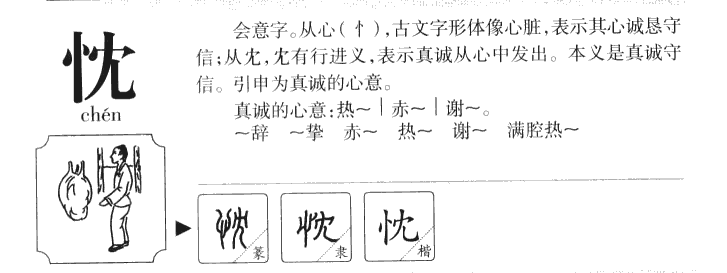 忱
chén
会意字。从心(忄),古文字形体像心脏,表示其心诚恳守
信;从冘,冘有行进义,表示真诚从心中发出。本义是真诚守
信。引申为真诚的心意。
真诚的心意:热～｜赤～｜谢～。
～辞　～挚　赤～　热～　谢～　满腔热～
忱 篆
忱 隶
忱 楷